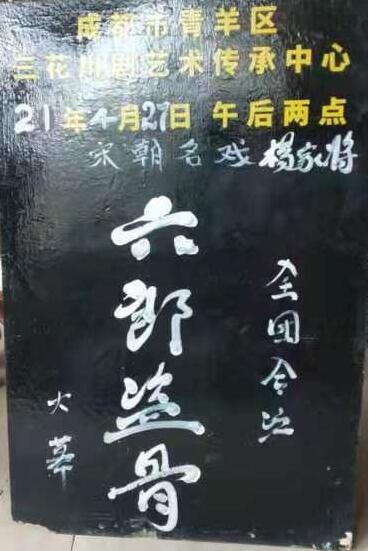 成都市青羊区
三花川剧艺术传承中心
21年4月27日 午后两点
宋朝名戏 楊家将
六郎盗骨
全团合演
大幕